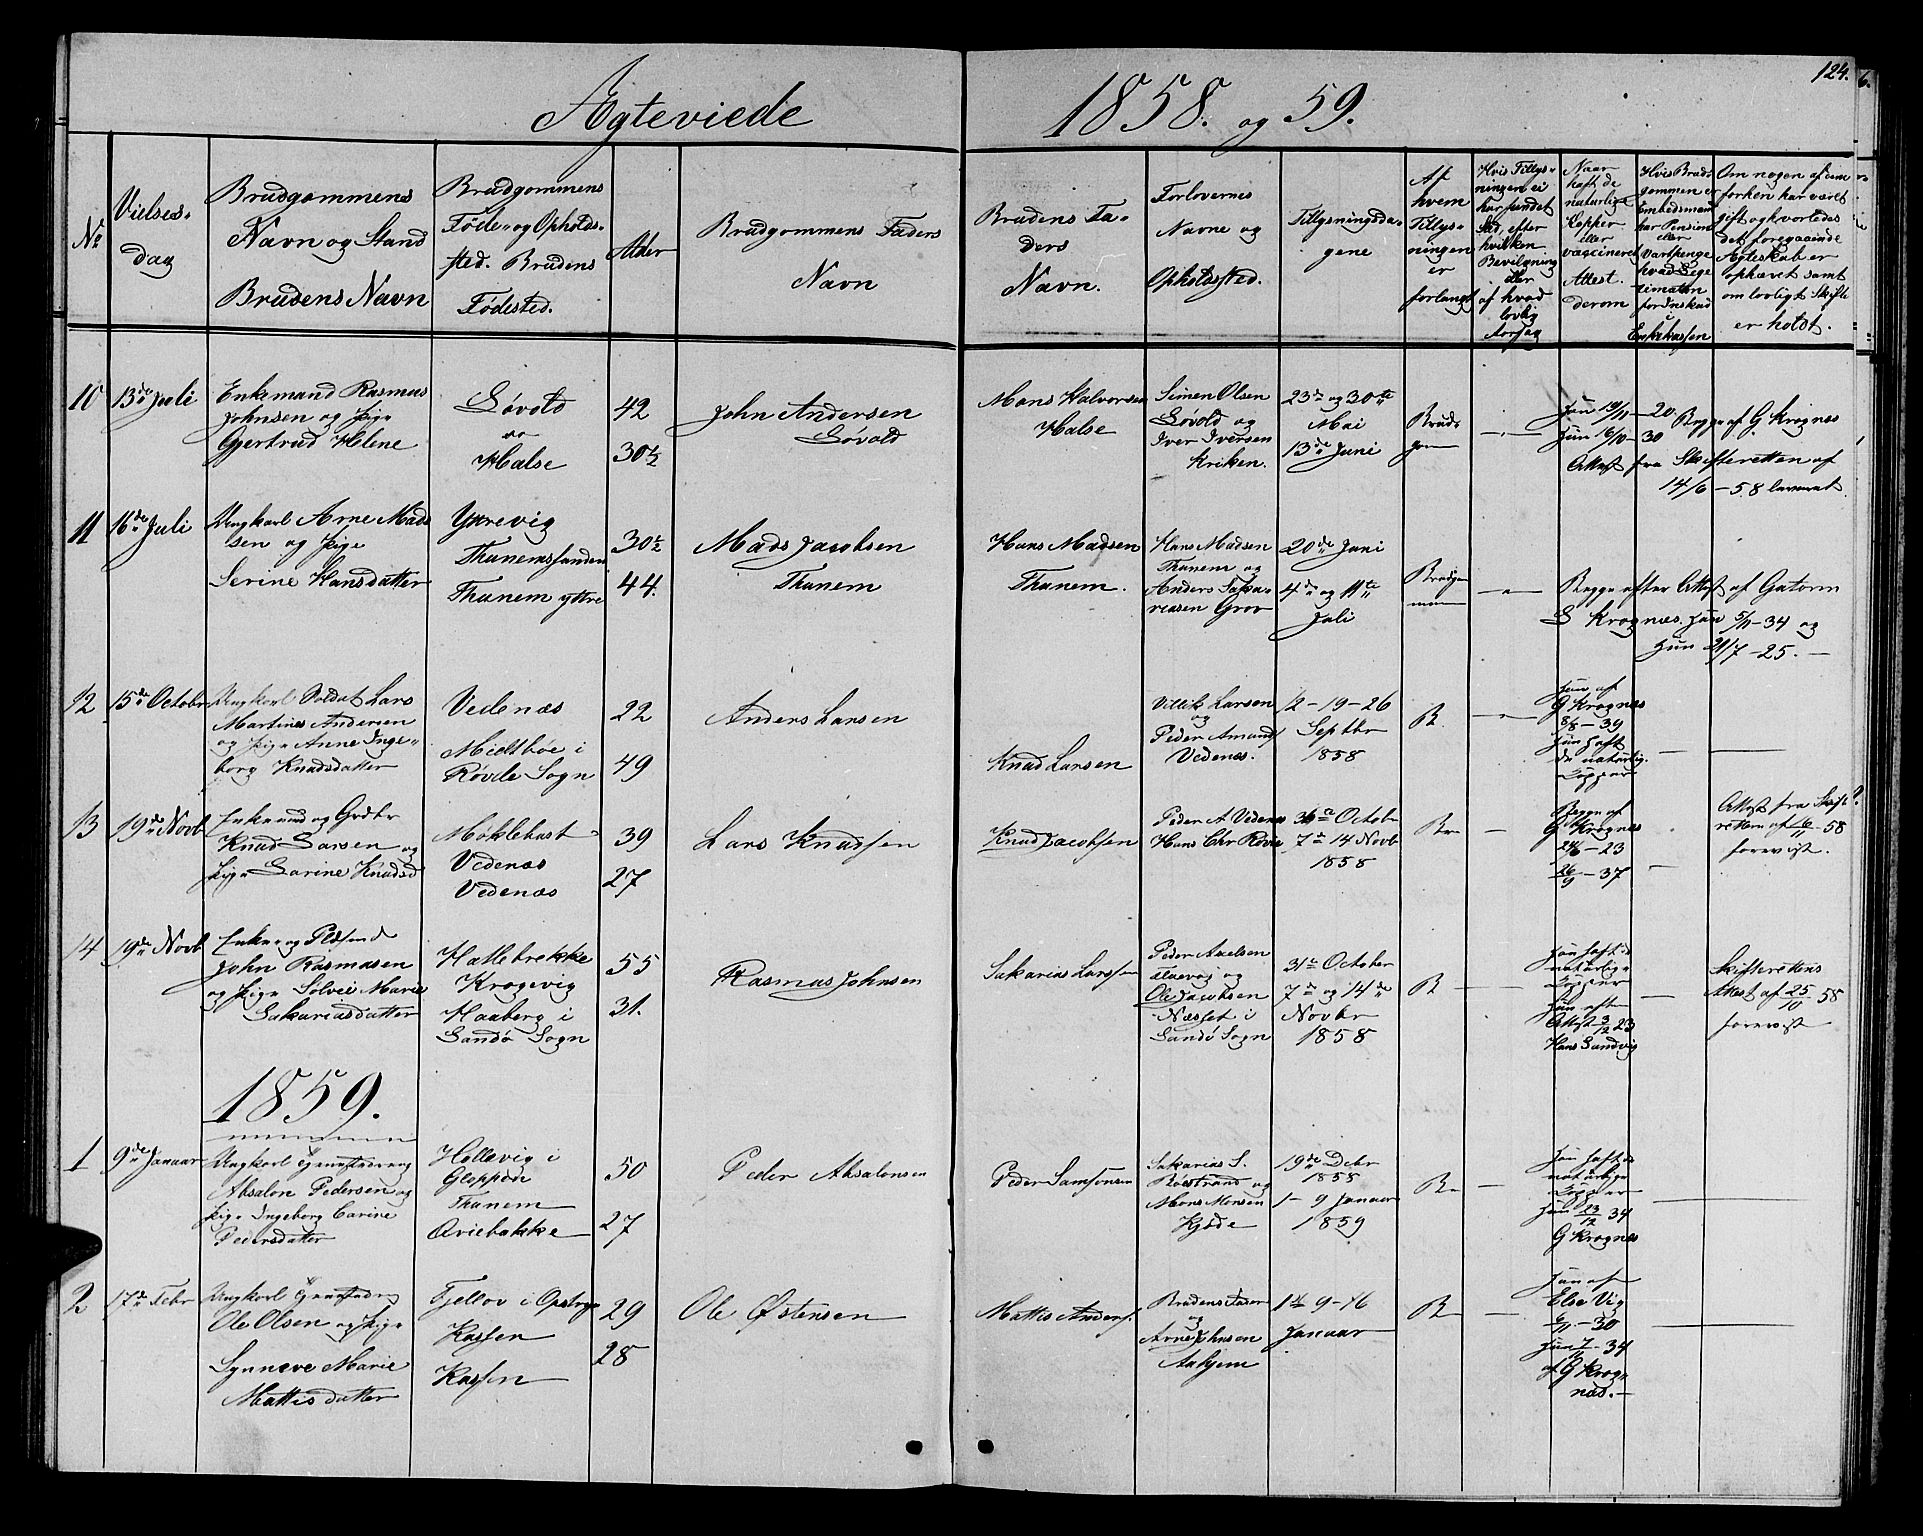 124.
Ægteviede 1858. og 59.
No
Vielses-
dag
Brudgommens
Navn og Stand
Brudens Navn
Brudgommens
Føde- og Opholds-
sted. Brudens
Fødested.
Alder
Brudgommens Faders
Navn
Brudens Fa-
ders
Navn.
Forlovernes
Navne og
Opholdssted.
Tillysningsda-
gene
Af
hvem
Tillys-
ningen
er
forlangt
Hvis Tillys-
ningen ei
har fundet
Sted, efter
hvilken
Bevilgning
eller
af hvad
lovlig
Aarsag
Naar
haft de
naturlige
Kopper
eller
vaccineret
Attest
derom
Hvis Brud-
gommen er
Embedsmand
har Pension
eller
Vartpenge
hvad Lige
for Indskud
i
Enkekassen
Om nogen af dem
forhen har været
gift og hvorledes
det foregaaende
Ægteskab er
ophævet samt
om lovligt Skifte
er holdt.
10
13de Juli
Enkemand Rasmus
Johnsen og Pige
Gjertrud Helene
Løvold
Halse
42
30½
John Andersen
Løvold
Mons Halvorsen
Halse
Simen Olsen
Løvold og
Iver Iversen
Kriken.
23de og 30te
Mai
13de Juni
Brud-
gom
han 19/11 - 20 Begge af G. Krognæs
hun 16/10 - 30
Attest fra Skifteretten af
14/6 - 58 leveret
11
16de Juli
Ungkarl Arne Mads
sen og Pige
Serine Hansdatter
Yttrevig
Thunemssanden
Thunem yttre
30½
44.
Mads Jacobsen
Thunem
Hans Madsen
Thunem.
Hans Madsen
Thunem og
Anders Saka-
riasen Grov
20de Juni
4de og 11te
Juli
Brudgo
mmen
Begge efter Attest af Gatorm
S Krognæs. han 5/11 - 34 og
hun 21/7 - 25.
12
15de Octobr
Ungkarl Soldat Lars
Martines Andersen
og Pige Anne Inge-
borg Knudsdatter
Vedenæs
Midtbøe i
Røvde Sogn
22
49
Anders Larsen
Knud Larsen
Villik Larsen
og
Peder Amunds
Vedenæs.
12 - 19 - 26
Septbr
1858
B.
han af
G Krognæs
8/8 - 39
hun haft
de naturlig.
Kopper
13
19de Novb
Enkemand og Grdbr
Knud Larsen og
Pige Larine Knudsd
Moklebust
Vedenæs
Vedenæs
39
27
Lars Knudsen
Knud Jacobsen
Peder A Vedenæs
Hans Chr Røvde
31te Octobr
7de 14 Novb
1858
Br
Begge af
G Krognæs
24/6 - 23
26/9 - 37
Attest fra Skifte
retten af 6/11 - 58
forevist.
14
19de Novb
Enkem og Pldsmd
John Rasmusen
og Pige Sølvei Marie
Sakariasdatter
Hatlebrekke
Krogevig
Haaberg i
Sandø Sogn
55
31.
Rasmus Johnsen
Sakarias Larssen
Peder Axelsen
og
Ole Jacobsen
Næsset i
Sandø Sogn
31te October
7de og 14de
Novbr
1858
B
han haft d
naturlige
Kopper
hun efter
Attest 3/12 23
Hans Sandvig
Skifterettens
Attest af 25/10 58
forevist
1859.
1
9de Januar
Ungkarl
Absalon Pedersen og
Pige Ingeborg Carine
Pedersdatter
Hellevig i
Gloppen
Thunem
Aviebakke
50
27
Peder Absalonsen
Peder Samsonsen
Sakarias S.
Røistrand og
Mons Monsen
Kjøde
19de Debr
1858
1 - 9 Januar
1859
Br
han haft d
naturlige
Kopper
hun 23/12 34
G Krognæs
2
17de Febr
Ungkarl
Ole Olsen og Pige
Synneve Marie
Mattisdatter
Fjellov i Opstryn
Kassen
Kassen
29
28
Ole Østensen
Mattis Anders.
Brudens Fader
og
Arne Johnsen
Aahjem
1te 9 - 16
Januar
B
han af
Else Vig
6/11 - 30
hun 7/10 - 34
af G Krog-
næs.